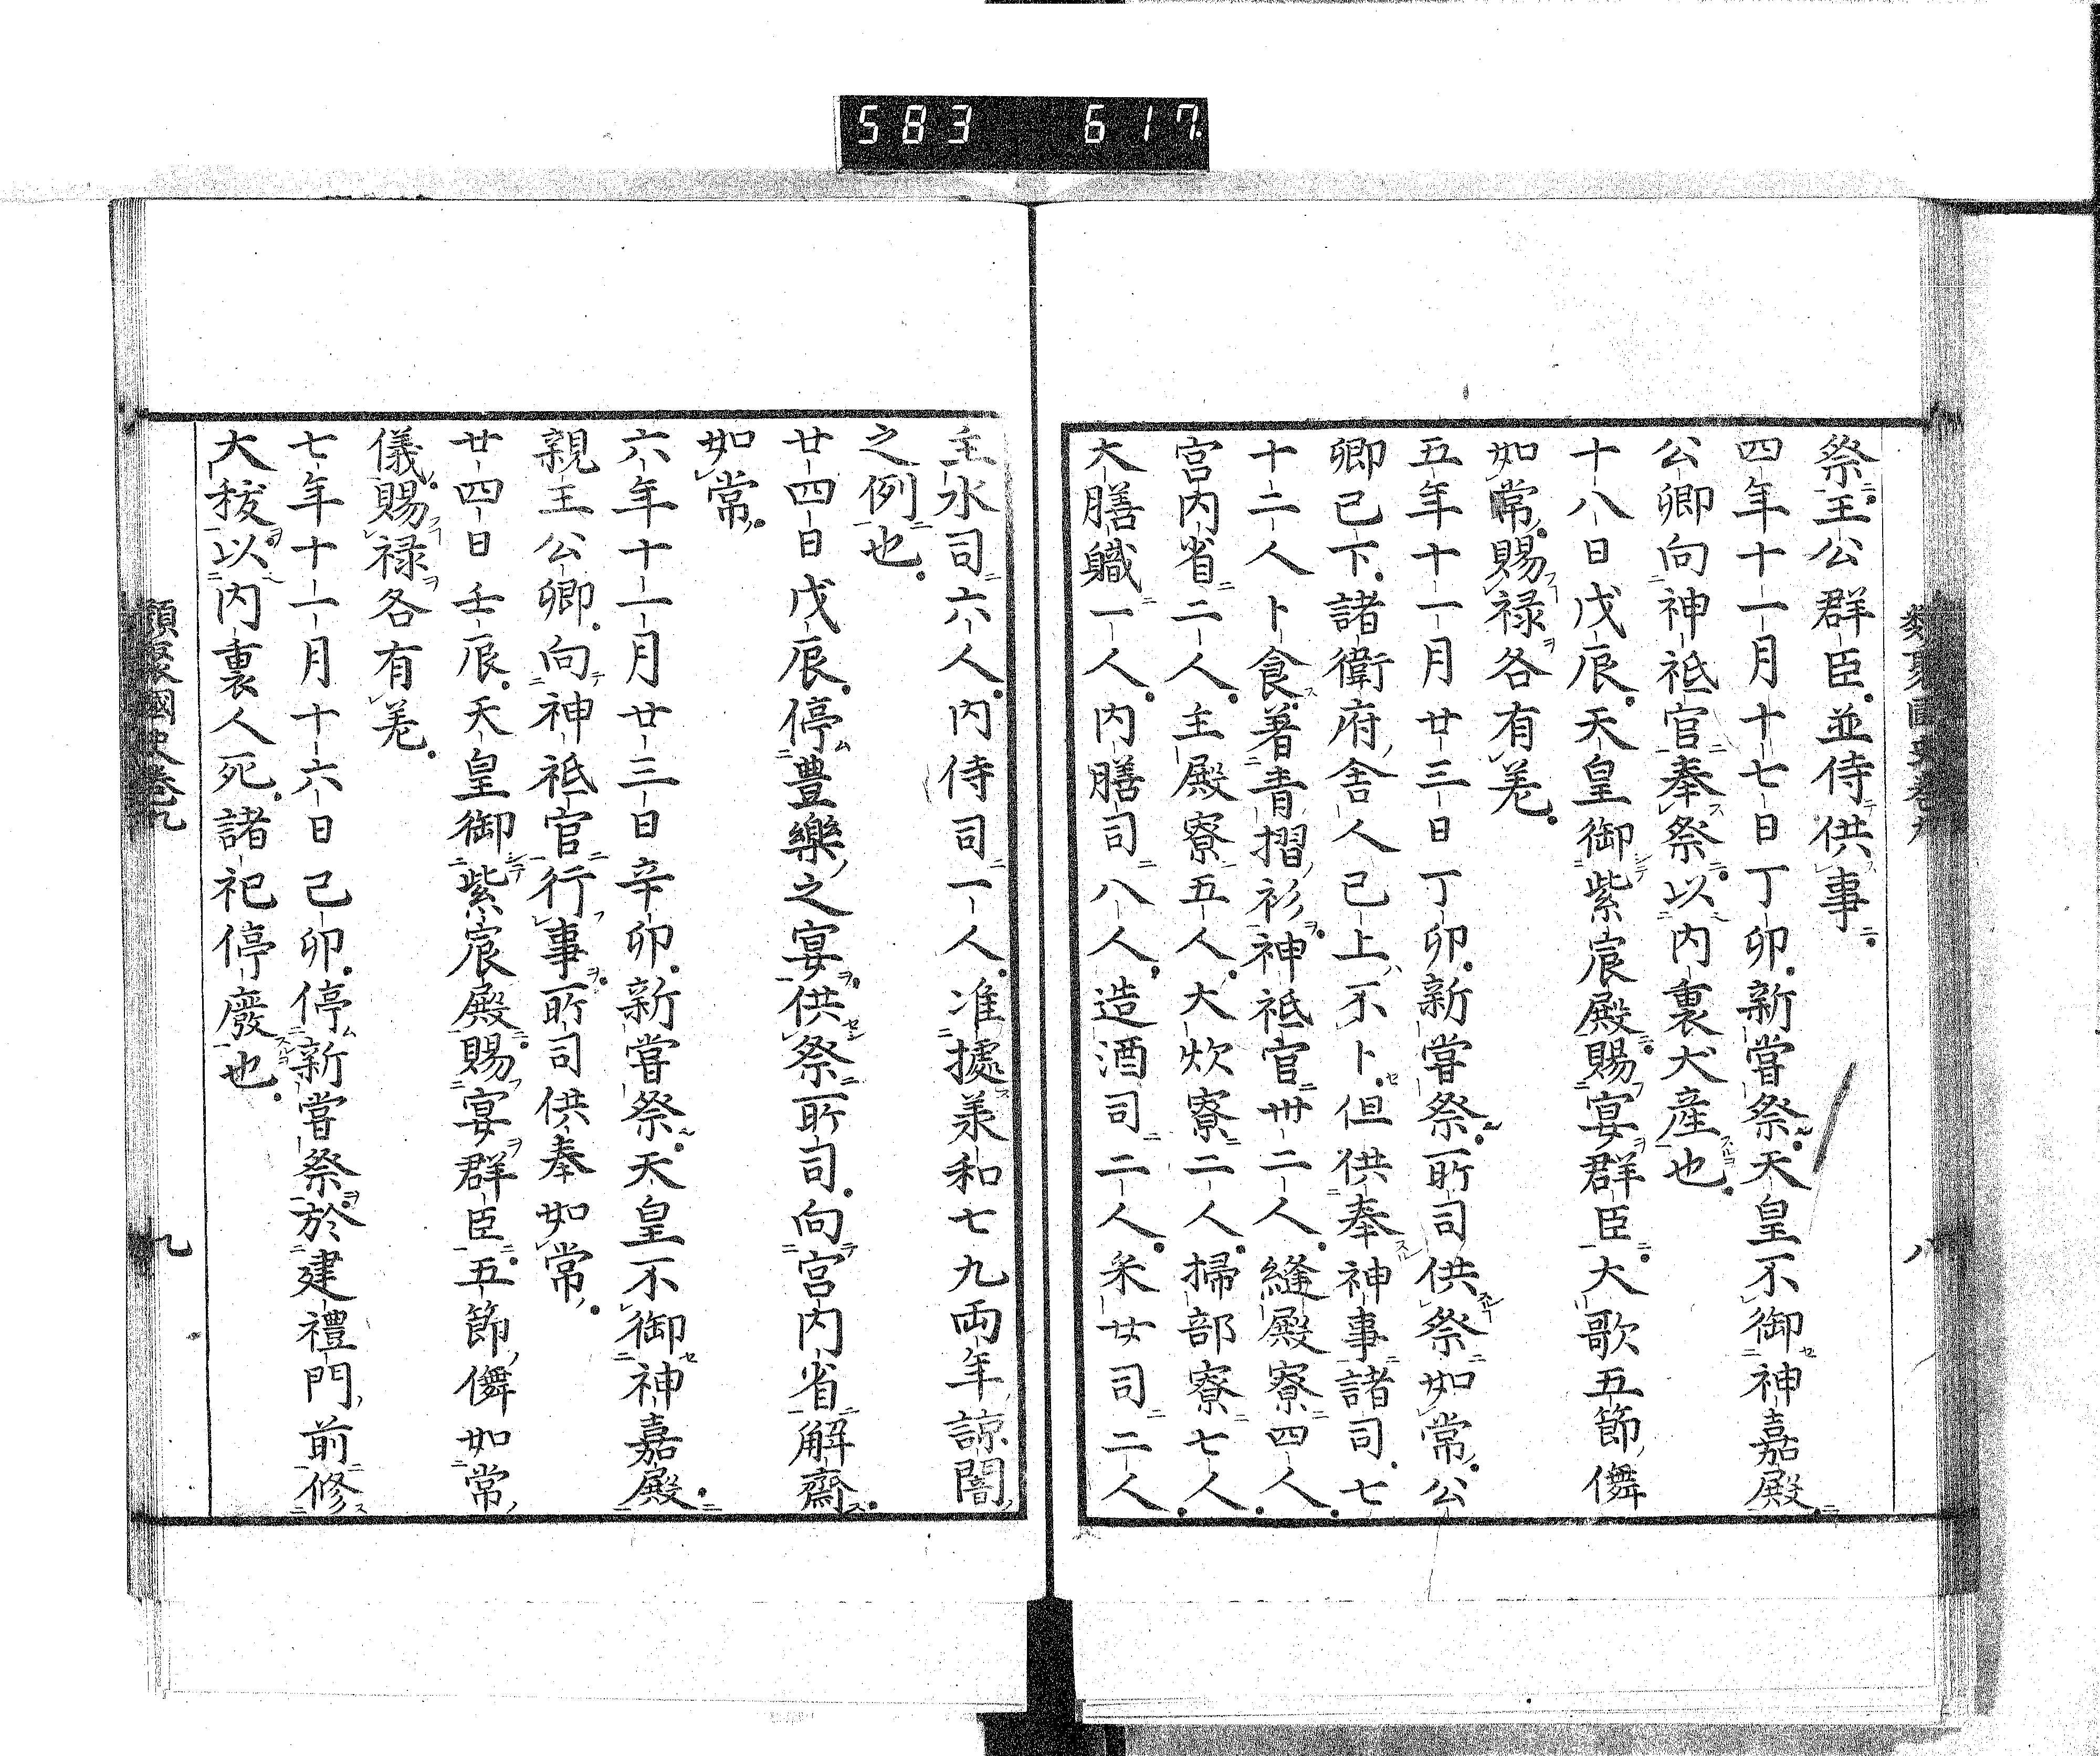 583 617
類聚國史卷九 八
祭王公群臣並侍供事
四年十一月十七日丁卯新嘗祭天皇不御神嘉殿
公卿向神祇官奉祭以内裏犬産也
十八日戊辰天皇御紫宸殿賜宴群臣大歌五節儛
如常賜禄各有差
五年十一月廿三日丁卯新嘗祭所司供祭如常公
卿已下諸衛府舎人已上不卜但供奉神事諸司七
十二人卜食著青摺衫神祇官卅二人縫殿寮四人
宮内省二人主殿寮五人大炊寮二人掃部寮七人
大膳職一人内膳司八人造酒司二人釆女司二人
主水司六人内侍司一人准據羕和七九両年諒闇
之例也
廿四日戊辰停豊樂之宴供祭所司向宮内省解齋
如常
六年十一月廿三日辛卯新嘗祭天皇不御神嘉殿
親王公卿向神祇官行事所司供奉如常
廿四日壬辰天皇御紫宸殿賜宴群臣五節儛如常
儀賜禄各有差
七年十一月十六日己卯停新嘗祭於建禮門前修
大秡以内裏人死諸祀停廢也
類聚國史卷九 九